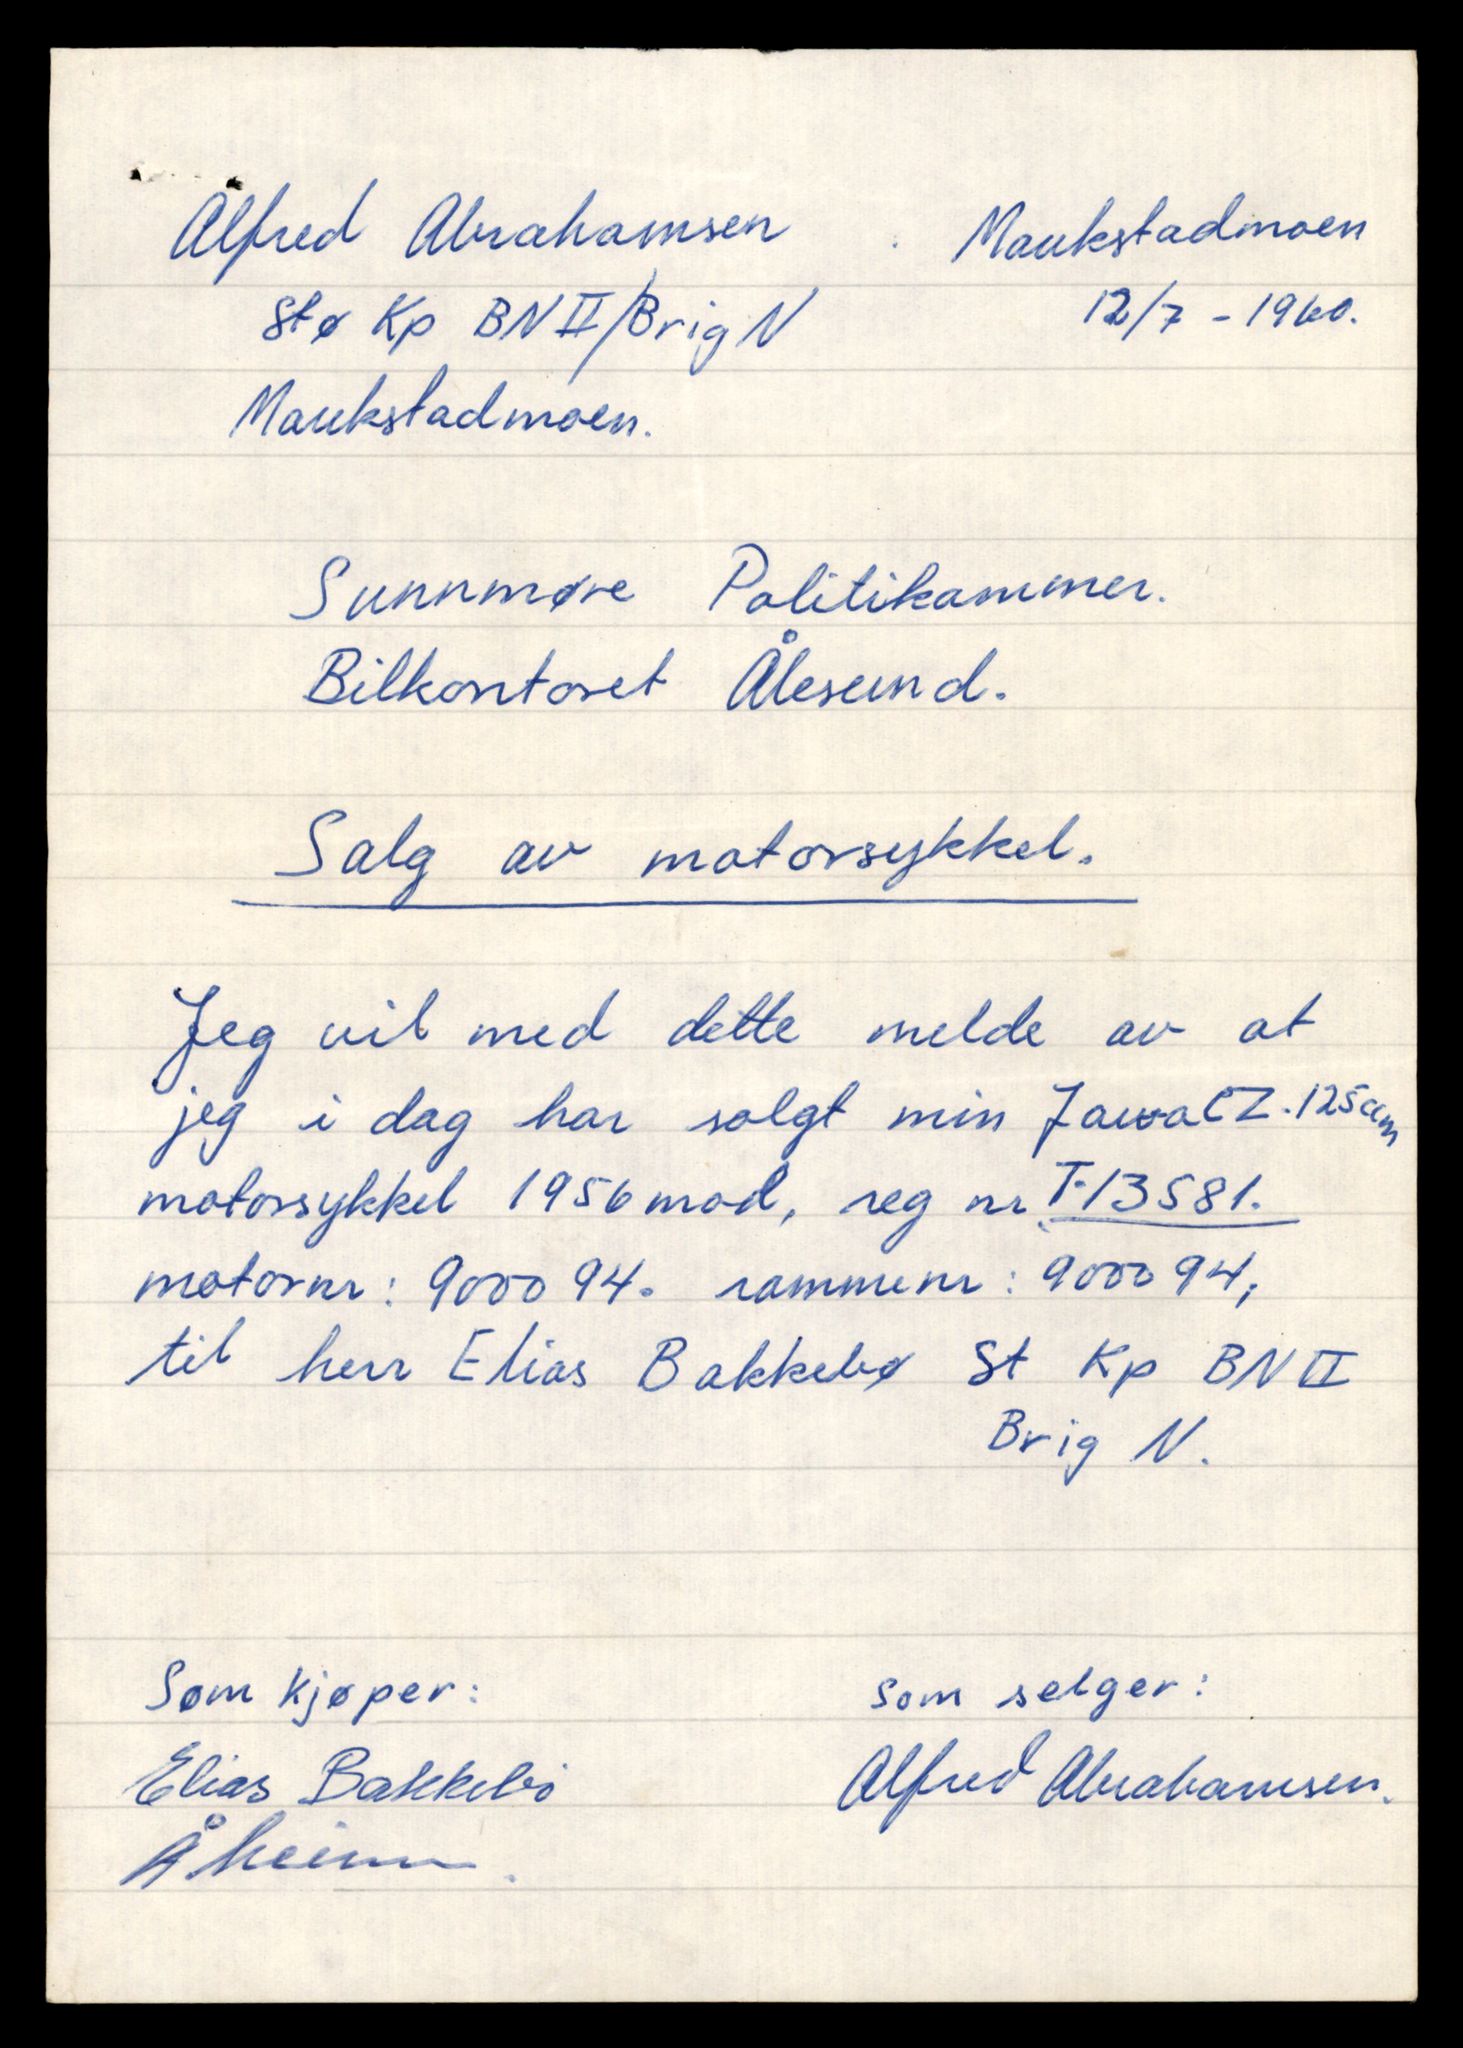 Alfred Abrahamsen
Maukstadmoen
12/7 - 1960.
Stø Kp BN II/Brig N
Maukstadmoen.
Sunnmøre Politikammer.
Bilkontoret Ålesund.
Salg av motorsykkel.
Jeg vil med dette melde av at
jeg i dag har solgt min Jawa CZ. 125 ccm
motorsykkel 1956 mod, reg nr T-13581.
motornr: 900094. rammenr: 900094,
til herr Elias Bakkebø St Kp BN II
Brig N.
Som kjøper:
som selger:
Elias Bakkebø
Alfred Abrahamsen.
Åheim.